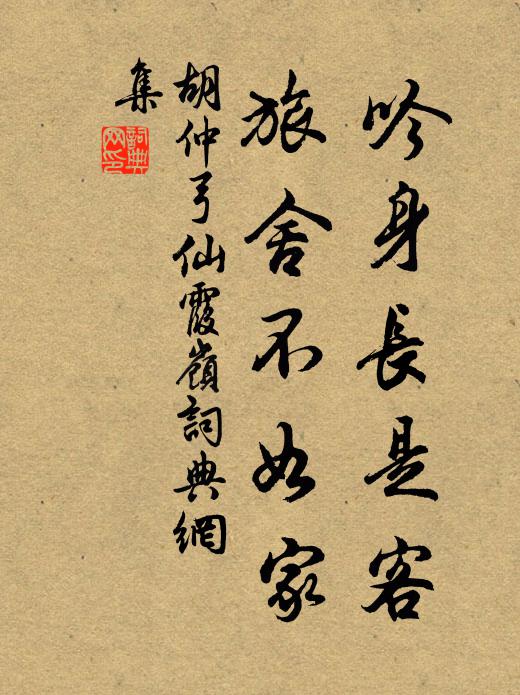 吟身長是客
旅舍不如家
胡仲弓仙霞嶺詞典網
集
詞典
网印